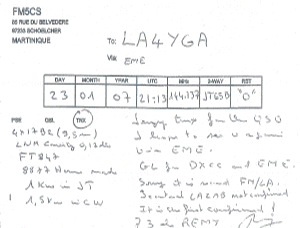 FM5CS
65 RUE DU BELVEDERE
97233 SCHOELCHER
MARTINIQUE
To: LA4YGA
Via: EME
DAY MONTH YEAR UTC MHz 2-WAY RST
23 01 07 21:13 144.137 JT65B "O"
PSE QSL TNX
4x17B2 (9,5m)
LNA
FT847
8877 Home made
1Kw in JT
1,5Kw in CW
Sorry for the QSO
I hope to see u again
via EME.
GL for DXCC and EME.
Sorry it is FM/LA.
not confirmed
It is the first confirmed!
73 de REMY